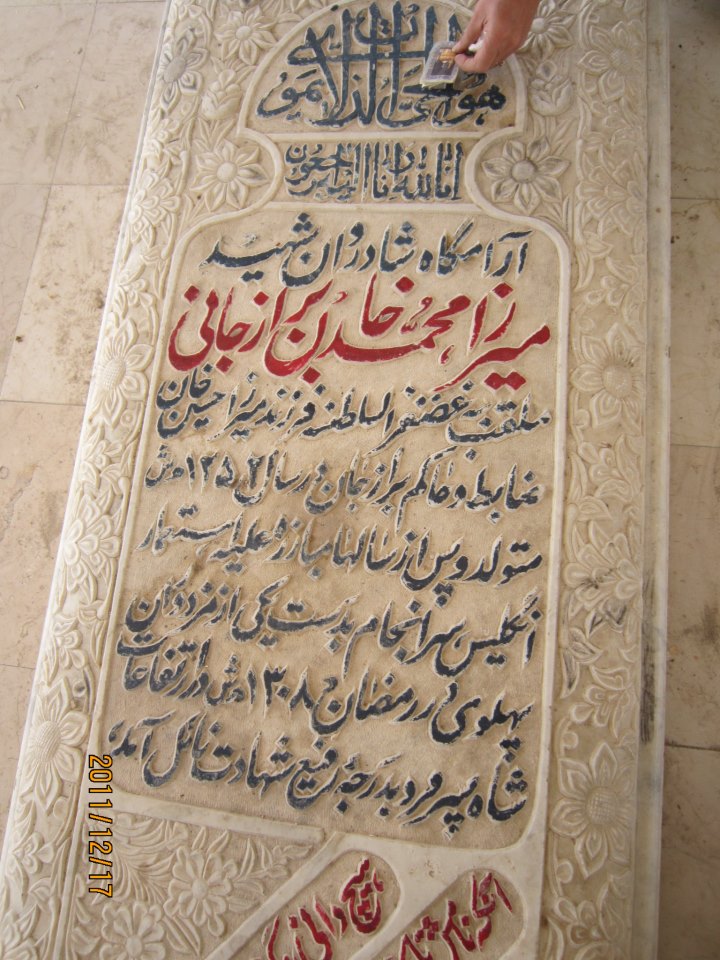 هو الحی الذی لا یموت
انا لله و انا الیه راجعون
آرامگاه شادروان شهید
میرزا محمد خان برازجانی
ملقب به غضنفر السلطنه فرزند میرزا حسین خان
ضابط و حاکم برازجان در سال ۱۲۵۲ ه ش
متولد و پس از سالها مبارزه علیه استعمار
انگلیس سرانجام بدست یکی از مزدوران
پهلوی در رمضان ۱۳۰۸ ه ش در ارتفاعات
شاه پسر مرد بدرجه رفیع شهادت نائل آمد
2011/12/17